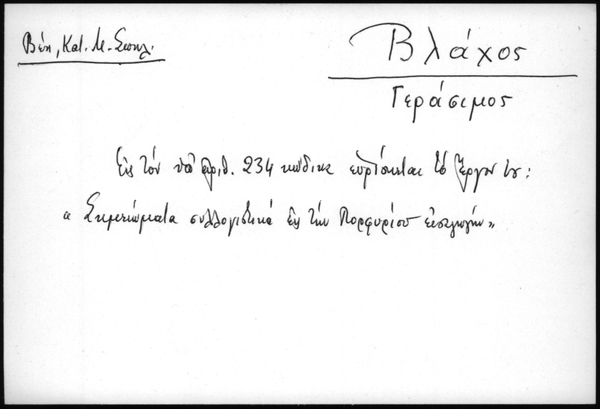 Βέη, Κατ. Μ. Σπηλ.
Βλάχος
Γεράσιμος
Εἰς τὸν ὑπ' ἀριθ. 234 κώδικα εὑρίσκεται τὸ ἔργον του:
« Σημειώματα συλλογιστικά εἰς τὴν Πορφυρίου εἰσαγωγήν »